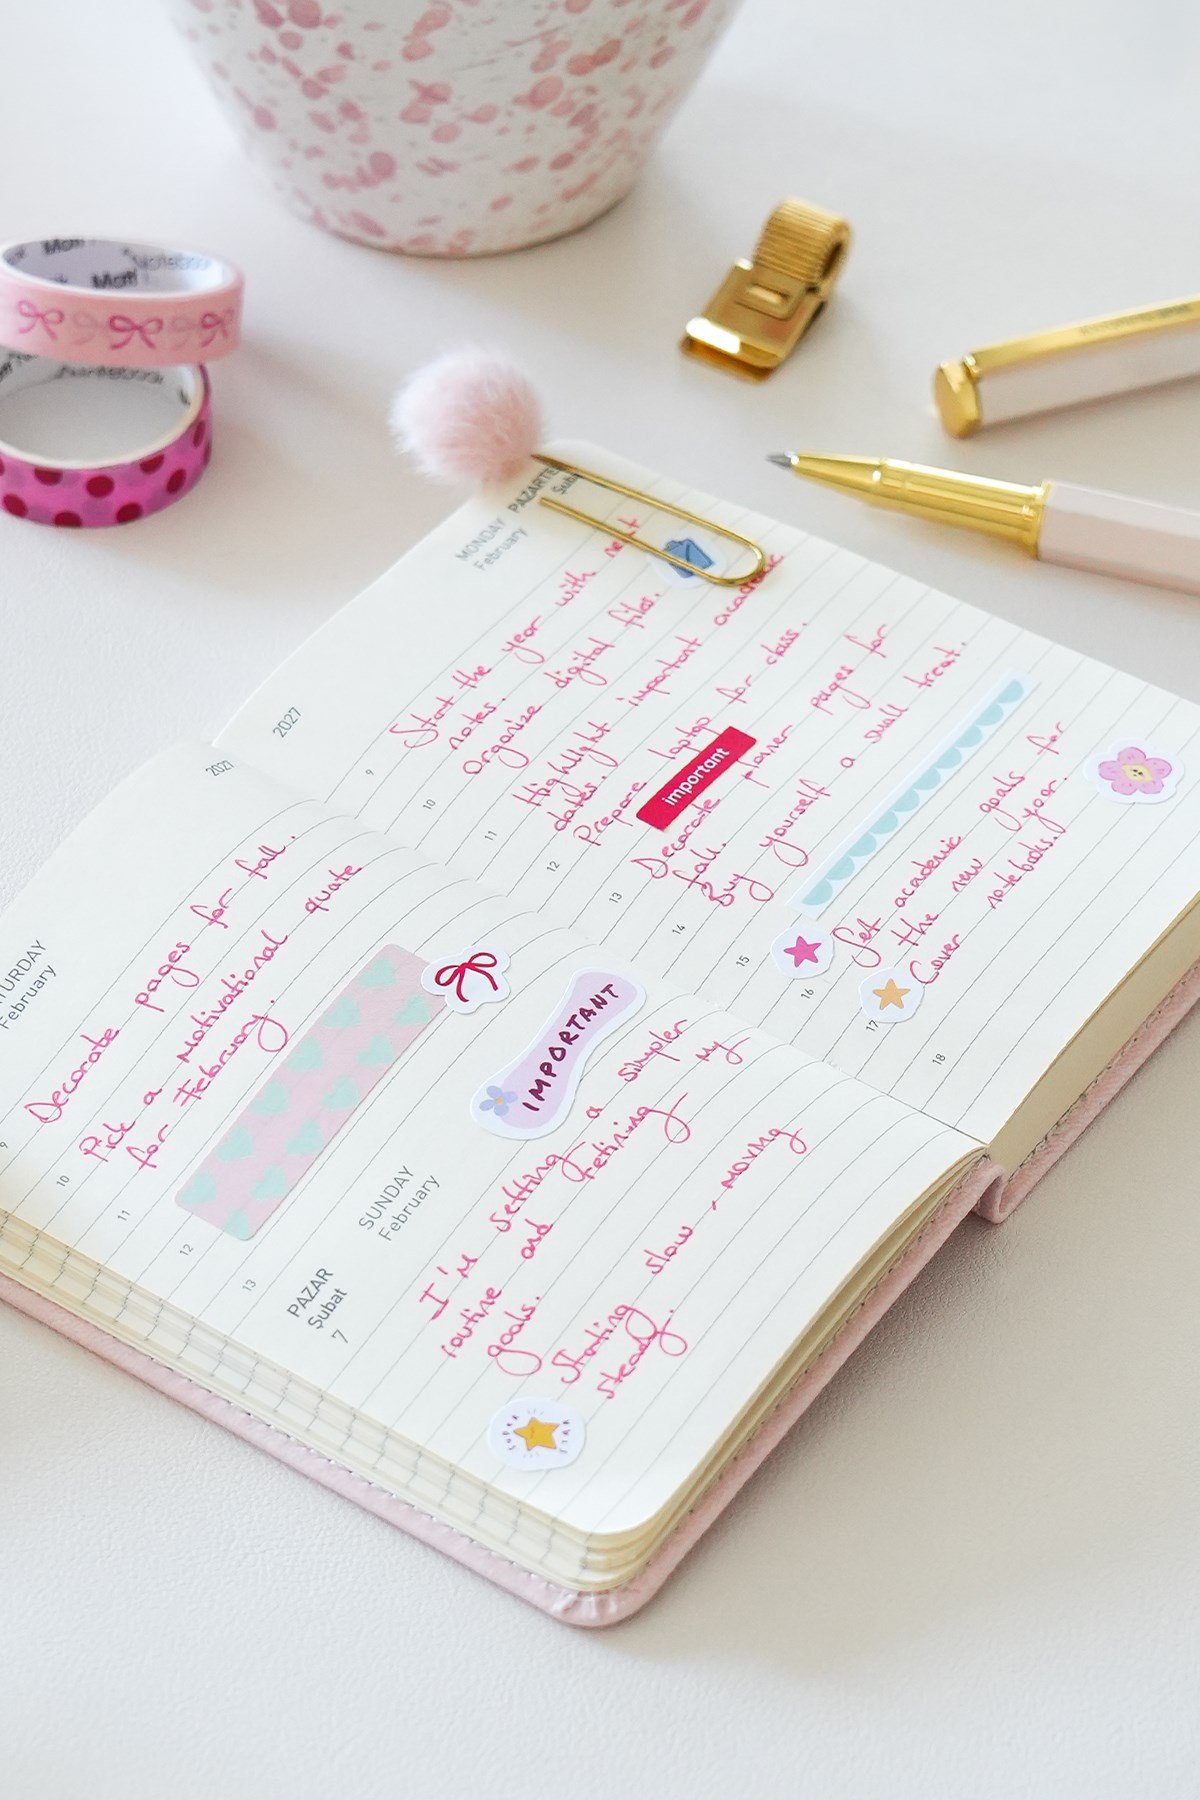 2027
SATURDAY
February
9
Decorate pages for fall.
10
Pick a motivational quate
11
for February.
12
13
SUNDAY
February
PAZAR
Şubat
7
IMPORTANT
I'm setting a simpler
routine and refining my
goals.
Starting slow-moving
steady.
SUPER STAR
2027
MONDAY
February
PAZARTESİ
Şubat
9
Start the year with neat
10
notes.
Organize digital files.
11
Highlight important academic
dates.
12
Prepare laptop for class.
important
13
Decorate planner pages for
fall.
14
Buy yourself a small treat.
15
16
Set academic goals for
17
the new year.
Cover notebooks.
18
Notebook